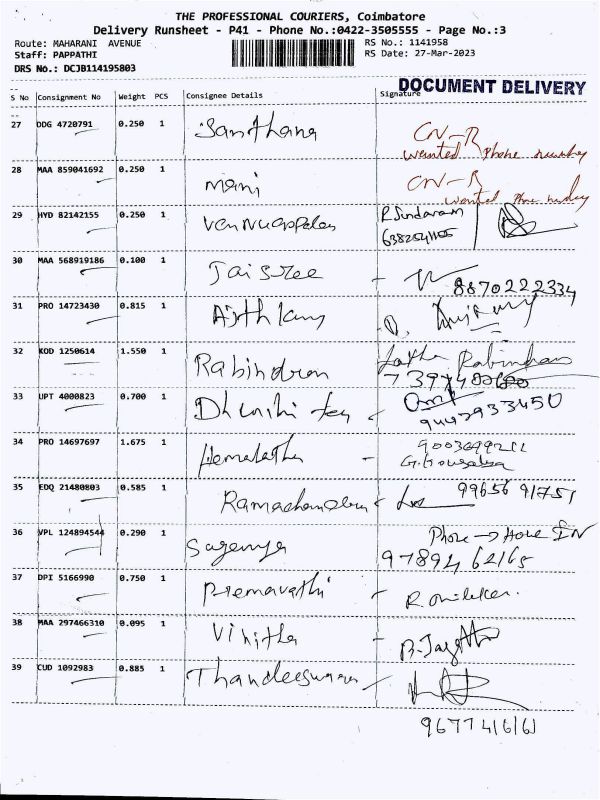 THE PROFESSIONAL COURIERS, Coimbatore
Delivery Runsheet - P41 - Phone No.:0422-3505555 - Page No.:3
Route: MAHARANI AVENUE RS No.: 1141958
Staff: PAPPATHI RS Date: 27-Mar-2023
DRS No.: DCJB114195803
DOCUMENT DELIVERY
S No Consignment No Weight PCS Consignee Details Signature
27 DDG 4720791 0.250 1 Santhana CN-R
wanted phone number
28 MAA 859041692 0.250 1 Mani CN-R
wanted
29 HYD 82142155 0.250 1 R. Sundaram
30 MAA 568919186 0.100 1 Jaisree - 8870222334
31 PRO 14723430 0.815 1
32 KOD 1250614 1.550 1 Rabindran Latha Rabindran
33 UPT 4000823 0.700 1 9442933450
34 PRO 14697697 1.675 1 Hemalatha -
35 EDQ 21480803 0.585 1 99656 91751
36 VPL 124894544 0.290 1 Phone → IN
97894 62165
37 DPI 5166990 0.750 1 Premavathi -
38 MAA 297466310 0.095 1 Vinitha -
39 CUD 1092983 0.885 1
9677416161